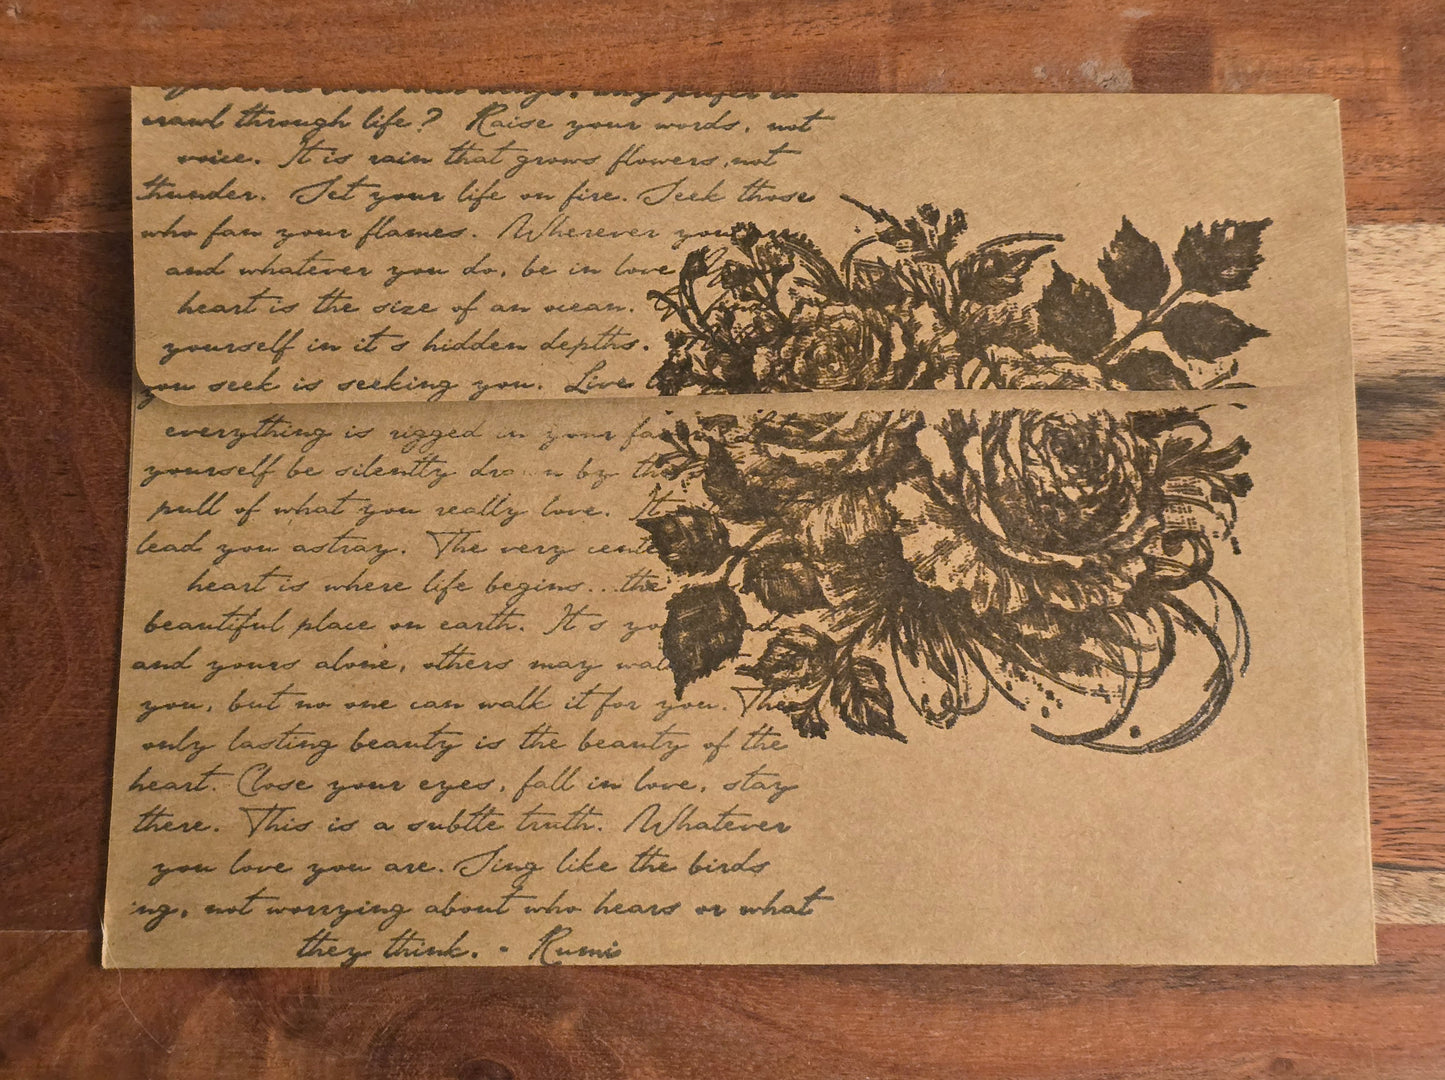 crawl through life? Raise your words, not
voice. It is rain that grows flowers, not
thunder. Set your life on fire. Seek those
who fan your flames. Wherever you
and whatever you do, be in love
heart is the size of an ocean.
yourself in it s hidden depths.
you seek is seeking you. Live
everything is rigged in your
yourself be silently by
pull of what you really love. It
lead you astray. The very
heart is where life begins...the
beautiful place on earth. It s
and yours alone, others may
you, but no one can walk it for you. The
only lasting beauty is the beauty of the
heart. Close your eyes, fall in love, stay
there. This is a subtle truth. Whatever
you love you are. Sing like the birds
ing, not worrying about who hears or what
they think. - Rumi